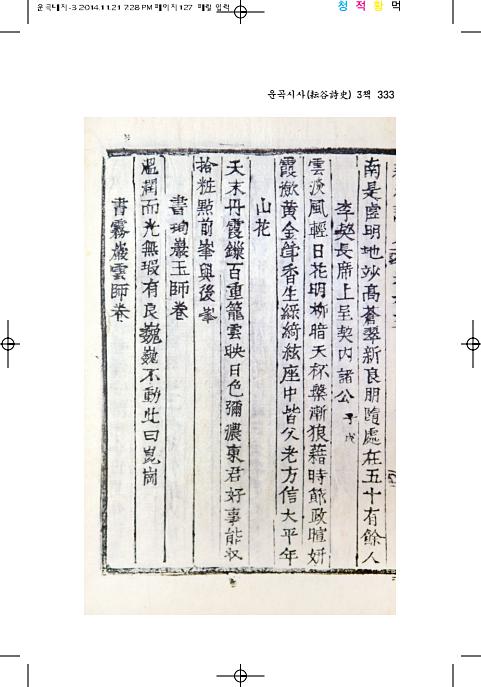 운곡내지-3 2014.11.21 7:28 PM 페이지127 매일 입력
청 적 황 먹
운곡시사(耘谷詩史) 3책 333
南是虛明地妙高蒼翠新良朋隨處在五十有餘人
李契長席上呈契內諸公 子戌
雲淡風輕日花明柳暗天杯槃漸狼藉時節政暄姸
霞觴黃金篩香生綠綺絃座中皆父老方信大平年
山花
天末丹霞鑠百重籠雲映日色彌濃東君好事能收
拾粧點前峯與後峯
書珣巖玉師卷
溫潤而光無瑕有良巍巍不動此曰崑崗
書霧巖雲師卷